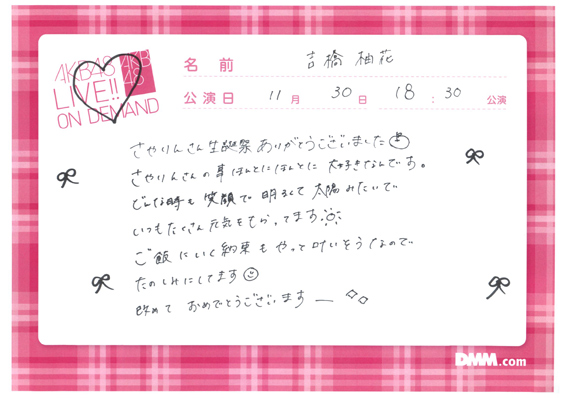 AKB48
LIVE!!
ON DEMAND
AKB
48
名前 吉橋 柚花
公演日 11月 30日 18:30 公演
さやりんさん 生誕祭 ありがとうございました
さやりんさんの事 ほんとにほんとに 大好きなんです。
どんな時も 笑顔で 明るくて 太陽みたいで
いつもたくさん元気をもらってます
ご飯にいく約束もやっと叶いそうなので
たのしみにしてます
改めて おめでとうございます
DMM.com